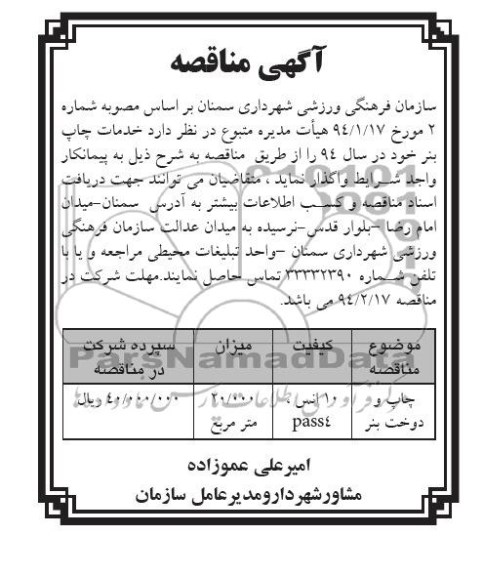 آگهی مناقصه
سازمان فرهنگی ورزشی شهرداری سمنان بر اساس مصوبه شماره
۲ مورخ ۹٤/۱/۱۷ هیأت مدیره متبوع در نظر دارد خدمات چاپ
بنر خود در سال ۹٤ را از طریق مناقصه به شرح ذیل به پیمانکار
واجد شرایط واگذار نماید ، متقاضیان می توانند جهت دریافت
اسناد مناقصه و کسب اطلاعات بیشتر به آدرس سمنان-میدان
امام رضا -بلوار قدس-نرسیده به میدان عدالت سازمان فرهنگی
ورزشی شهرداری سمنان -واحد تبلیغات محیطی مراجعه و یا با
تلفن شماره ۳۳۳۳۲۳۹۰ تماس حاصل نمایند.مهلت شرکت در
مناقصه ۹٤/۲/۱۷ می باشد.
موضوع کیفیت میزان سپرده شرکت
مناقصه در مناقصه
چاپ و ۱۰ انس ، ۲۰/۰۰۰ ٤۰/۰۰۰/۰۰۰ ریال
دوخت بنر pass٤ متر مربع
ParsNamadData
امیرعلی عموزاده
مشاورشهردارومدیرعامل سازمان